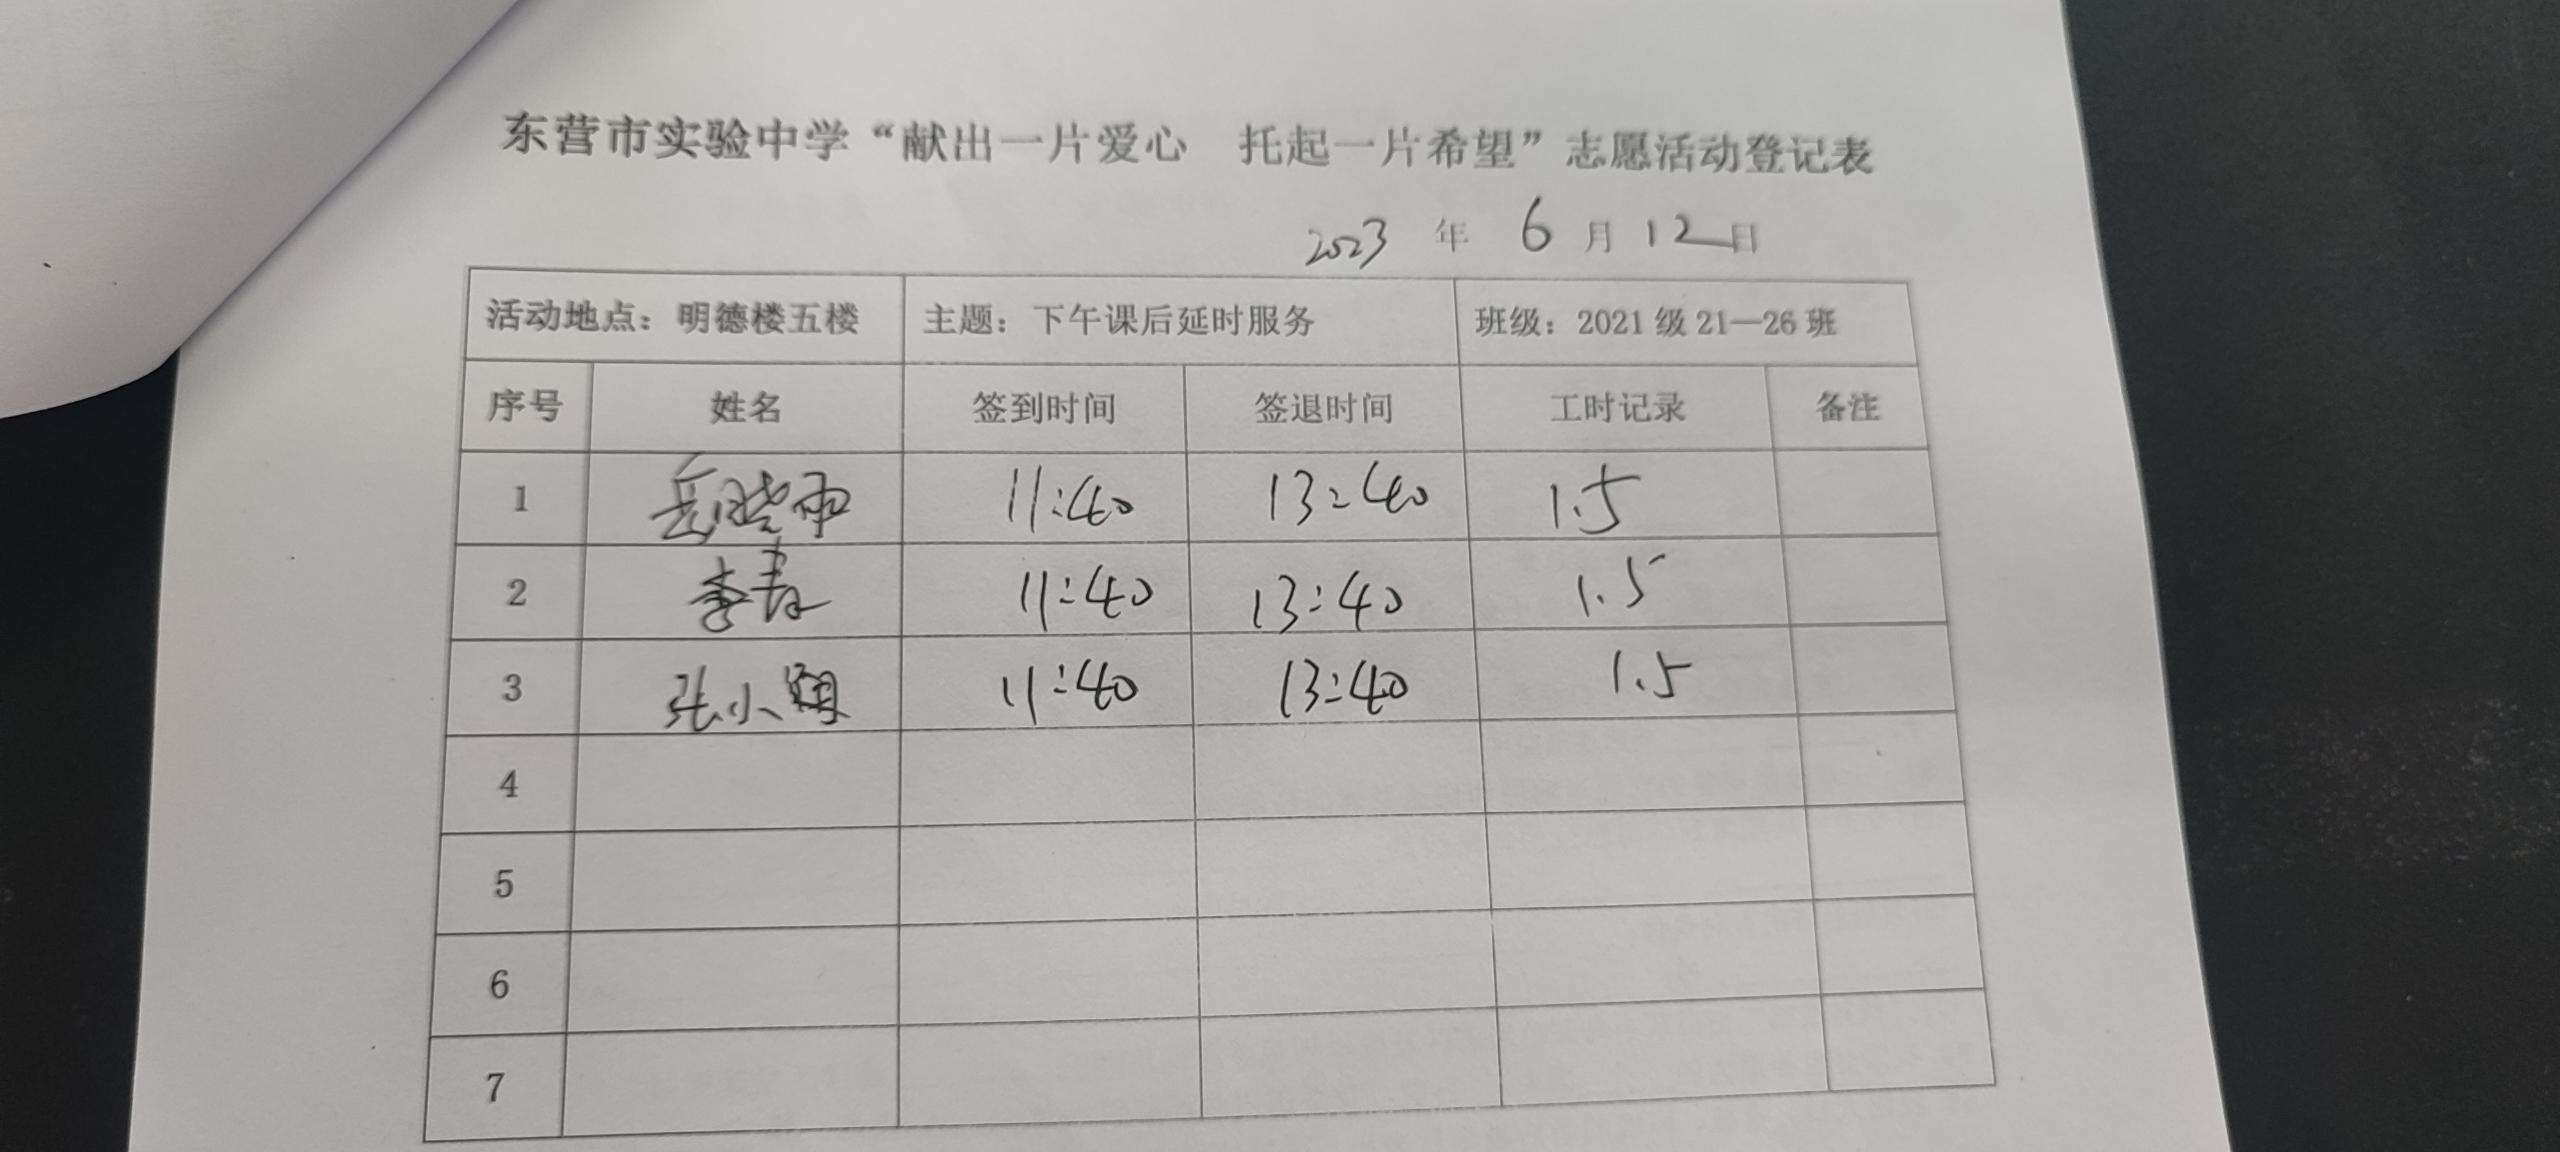 东营市实验中学“献出一片爱心 托起一片希望”志愿活动登记表
2023 年 6 月 12 日
活动地点：明德楼五楼 主题：下午课后延时服务 班级：2021 级 21—26 班
序号 姓名 签到时间 签退时间 工时记录 备注
1 岳晓雨 11:40 13:40 1.5
2 李青 11:40 13:40 1.5
3 张小翔 11:40 13:40 1.5
4
5
6
7